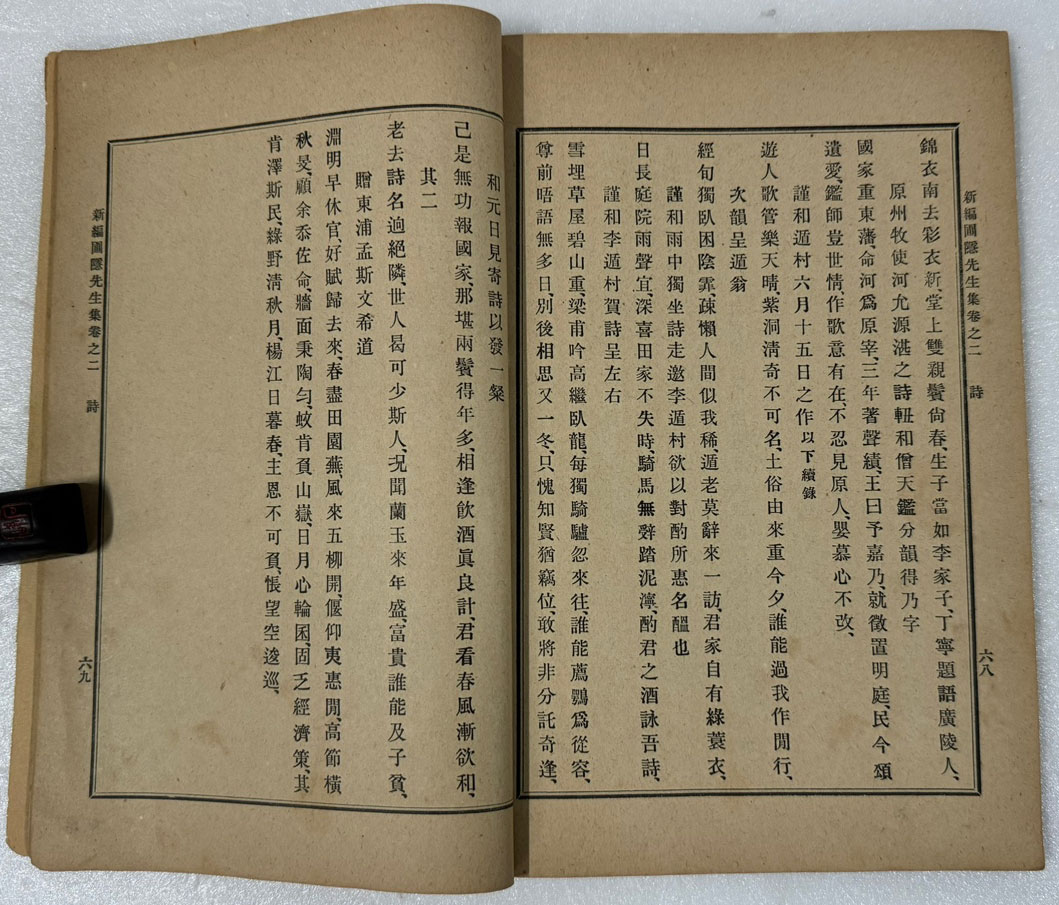 新編圃隱先生集卷之二　詩
六八
錦衣南去彩衣新、堂上雙親鬢尙春、生子當如李家子、丁寧題語廣陵人、
原州牧使河允源湛之詩軸和僧天鑑分韻得乃字
國家重東藩、命河爲原宰、三年著聲績、王曰予嘉乃、就徵置明庭、民今頌
遺愛、鑑師豈世情、作歌意有在、不忍見原人、嬰慕心不改、
謹和遁村六月十五日之作以下續錄
遊人歌管樂天晴、紫洞淸奇不可名、土俗由來重今夕、誰能過我作閒行、
次韻呈遁翁
經旬獨臥困陰霏、疎懶人間似我稀、遁老莫辭來一訪、君家自有綠蓑衣、
謹和雨中獨坐詩走邀李遁村欲以對酌所惠名醞也
日長庭院雨聲宜、深喜田家不失時、騎馬無辭踏泥濘、酌君之酒詠吾詩、
謹和李遁村賀詩呈左右
雪埋草屋碧山重、梁甫吟高繼臥龍、每獨騎驢忽來往、誰能薦鶚爲從容、
尊前晤語無多日、別後相思又一冬、只愧知賢猶竊位、敢將非分託奇逢、
和元日見寄詩以發一粲
己是無功報國家、那堪兩鬢得年多、相逢飮酒眞良計、君看春風漸欲和、
其二
老去詩名逈絕隣、世人曷可少斯人、況聞蘭玉來年盛、富貴誰能及子貧、
贈東浦孟斯文希道
淵明早休官、好賦歸去來、春盡田園蕪、風來五柳開、偃仰夷惠間、高節橫
秋旻、顧余忝佐命、牆面秉陶匀、蚊肯負山嶽、日月心輪囷、固乏經濟策、其
肯澤斯民、綠野淸秋月、楊江日暮春、主恩不可負、悵望空逡巡、
新編圃隱先生集卷之二　詩
六九